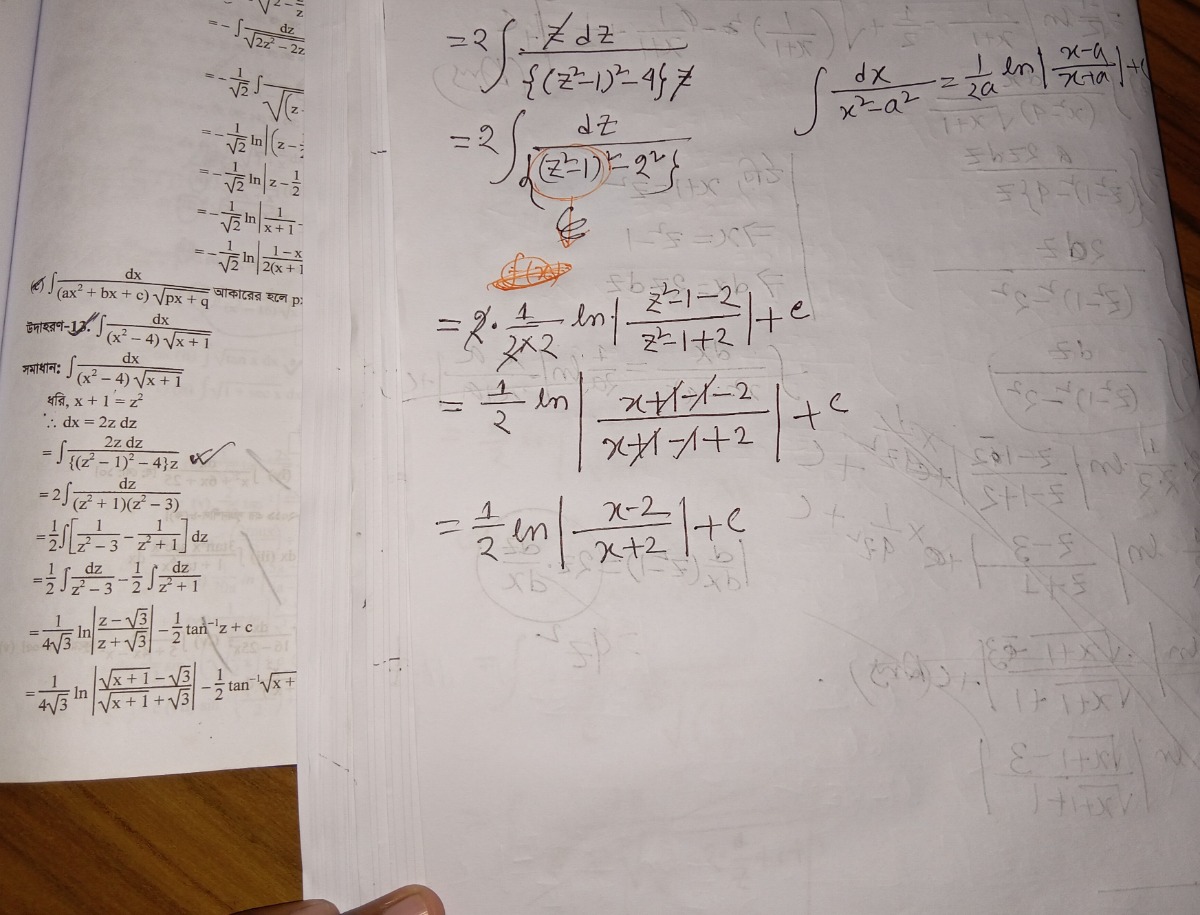 = - ∫ dz / √(2z² - 2z
= - 1/√2 ∫
= - 1/√2 ln |(z -
= - 1/√2 ln |z - 1/2
= - 1/√2 ln | 1/(x + 1)
= - 1/√2 ln | (1 - x)/(2(x + 1
(c) ∫ dx / ((ax² + bx + c) √(px + q)) আকারের হলে p:
উদাহরণ-13. ∫ dx / ((x² - 4) √(x + 1))
সমাধান: ∫ dx / ((x² - 4) √(x + 1))
ধরি, x + 1 = z²
∴ dx = 2z dz
= ∫ 2z dz / ({(z² - 1)² - 4}z)
= 2 ∫ dz / ((z² + 1)(z² - 3))
= 1/2 ∫ [1/(z² - 3) - 1/(z² + 1)] dz
= 1/2 ∫ dz/(z² - 3) - 1/2 ∫ dz/(z² + 1)
= 1/(4√3) ln |(z - √3)/(z + √3)| - 1/2 tan⁻¹z + c
= 1/(4√3) ln |(√(x + 1) - √3)/(√(x + 1) + √3)| - 1/2 tan⁻¹√(x +
= 2 ∫ z dz / ({(z²-1)² - 4} z)
∫ dx/(x² - a²) = 1/2a ln |(x-a)/(x+a)| + c
= 2 ∫ dz / {(z²-1)² - 2²}
= 2 · 1/(2×2) ln |(z²-1-2)/(z²-1+2)| + c
= 1/2 ln |(x+1-1-2)/(x+1-1+2)| + c
= 1/2 ln |(x-2)/(x+2)| + c